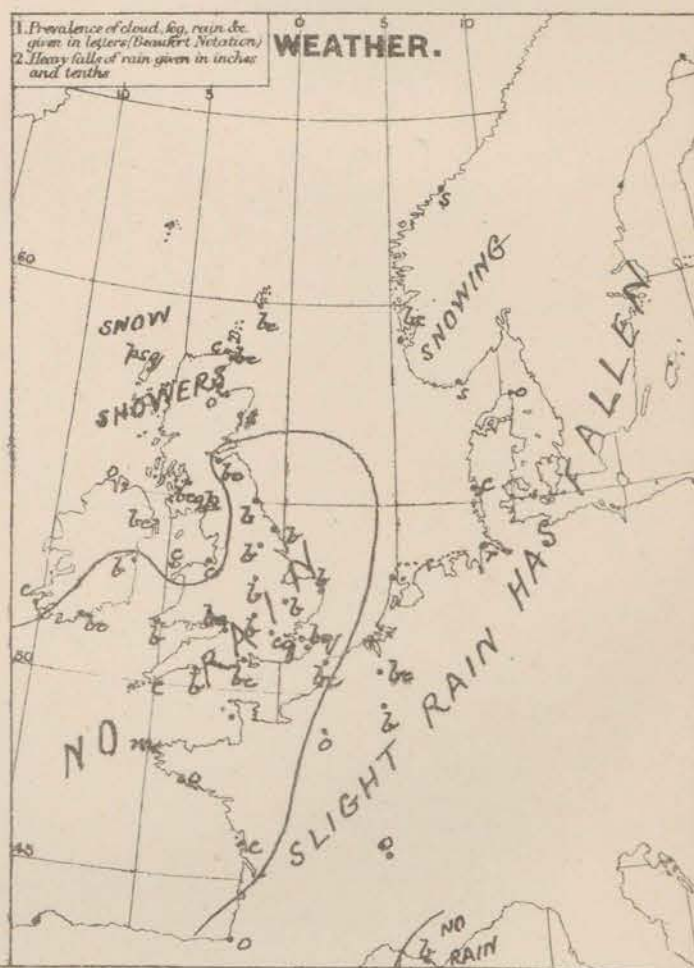 1. Prevalence of cloud, fog, rain &c.
given in letters (Beaufort Notation)
2. Heavy falls of rain given in inches
and tenths
WEATHER.
10
5
0
5
10
60
50
45
SNOW
SHOWERS
SNOWING
NO RAIN
SLIGHT RAIN HAS FALLEN
NO
RAIN
s
bc
bc
c
o
s
o
c
bc
o
b
b
b
b
c
c
c
bc
b
b
bc
c
b
bc
bc
b
o
o
c
o
o
b